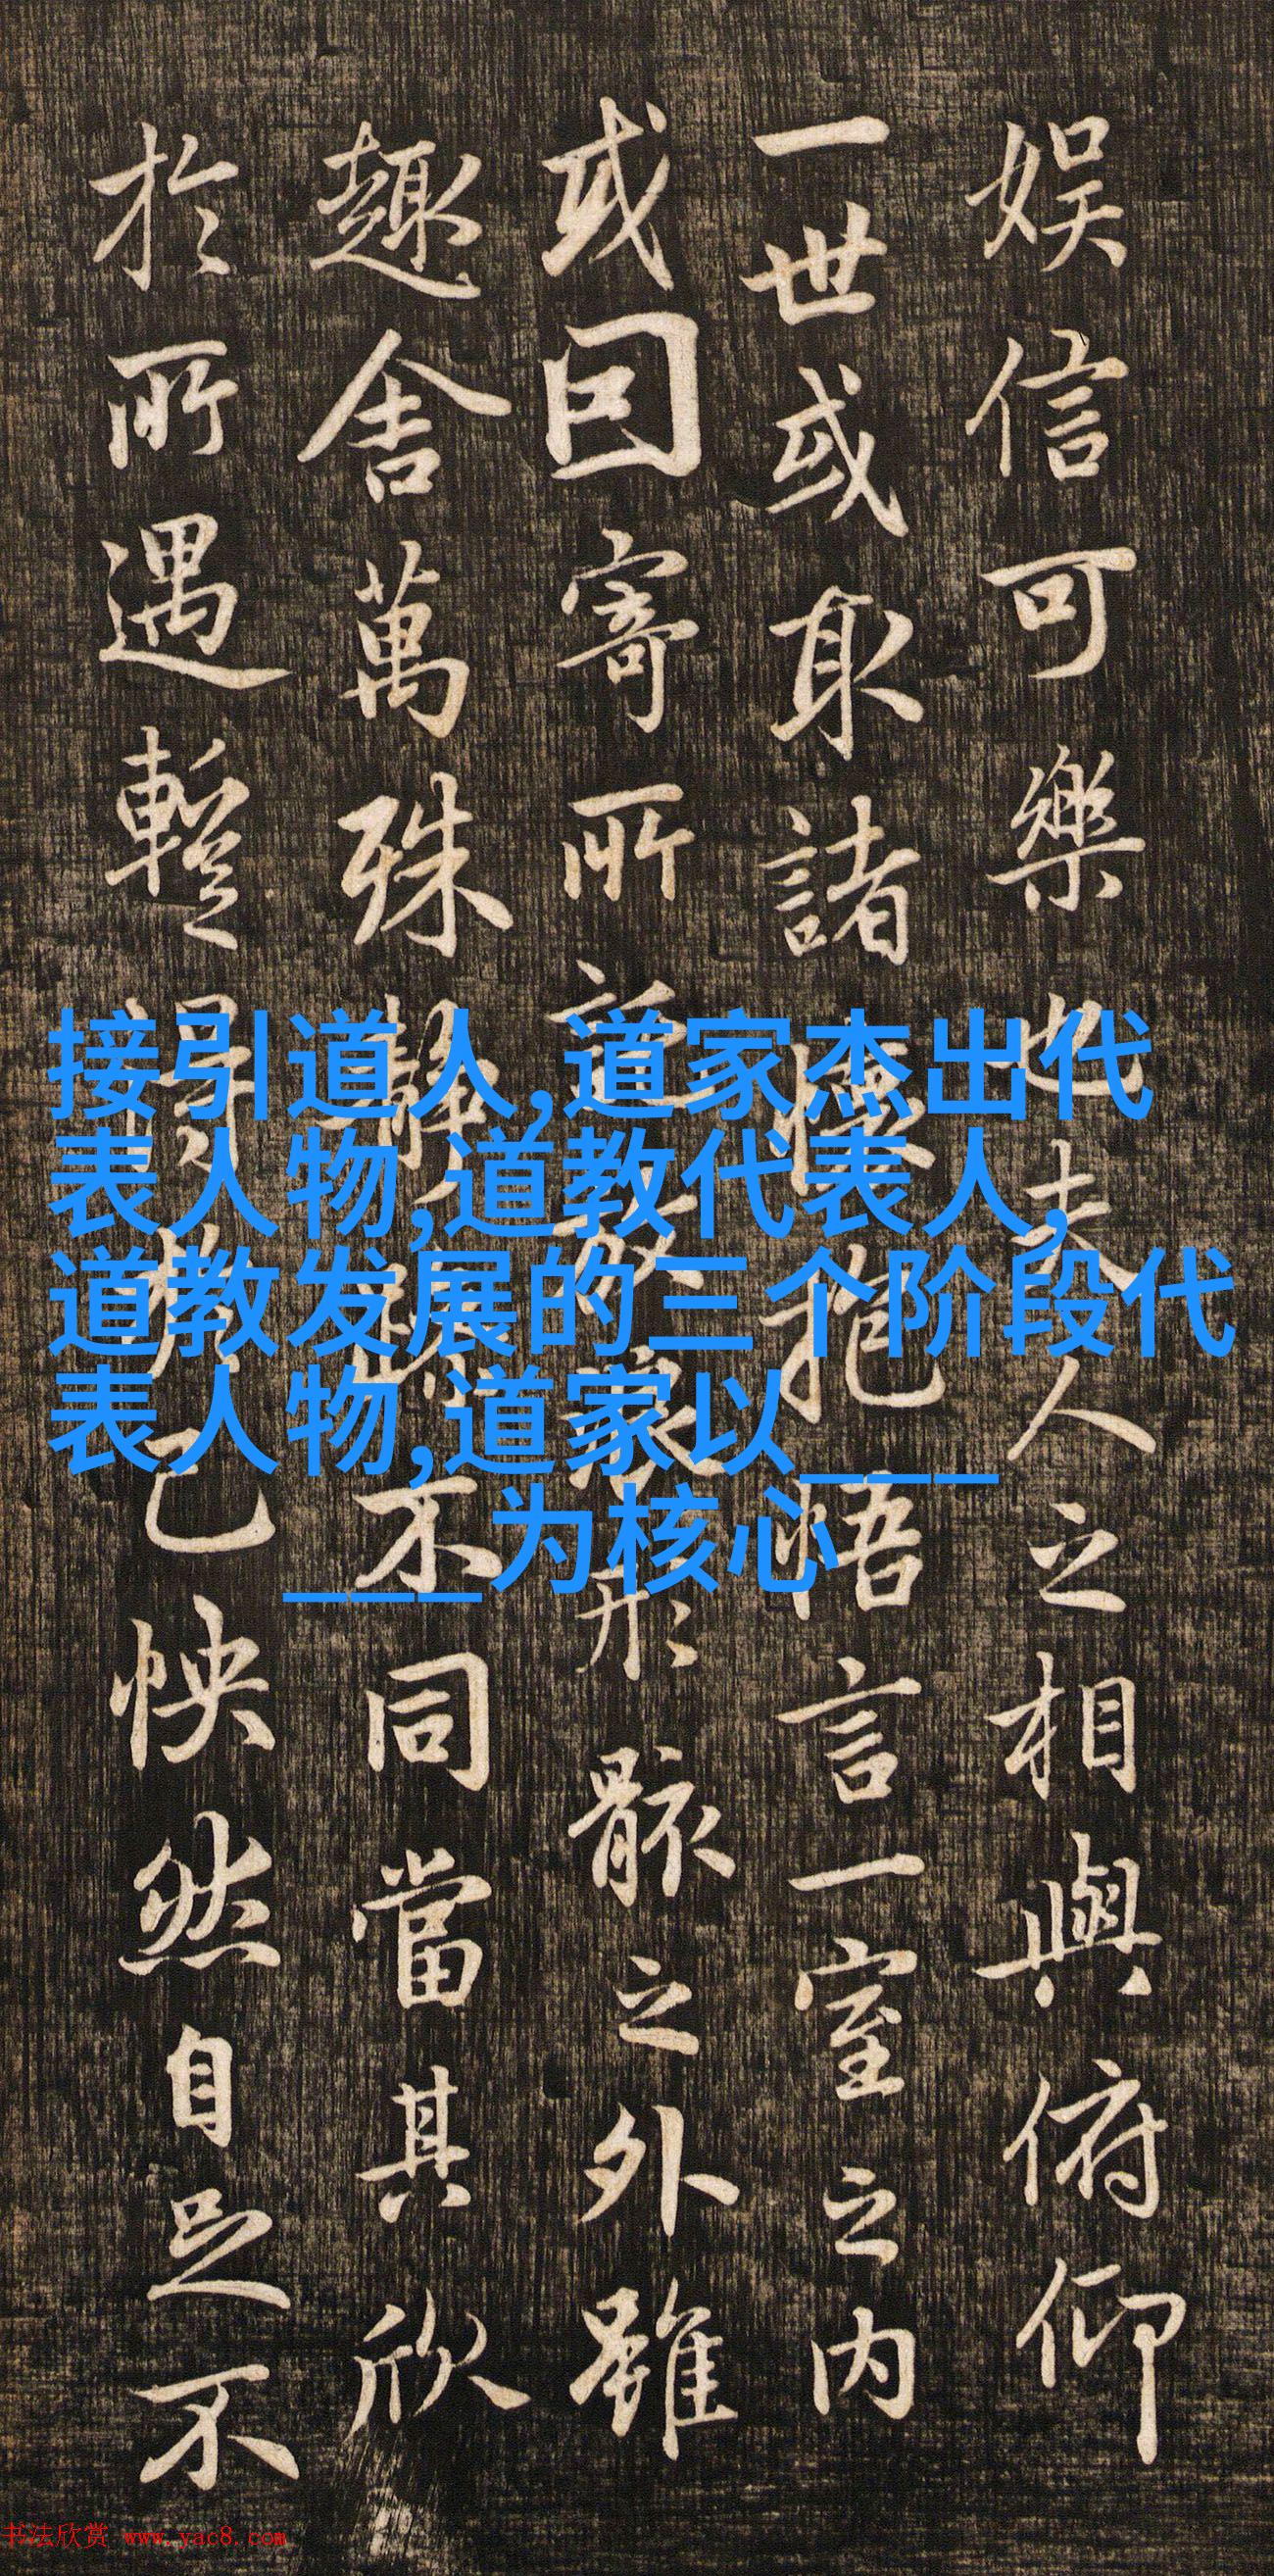 娱信可樂也夫人之相與俯仰
一世或取諸懷抱悟言一室之内
或因寄所託放浪形骸之外雖
趣舍萬殊静躁不同當其欣
於所遇暫得於己怏然自足不
接引道人,道家杰出代
表人物,道教代表人,
道教发展的三个阶段代
表人物,道家以___
___为核心
书法欣赏 www.yac8.com